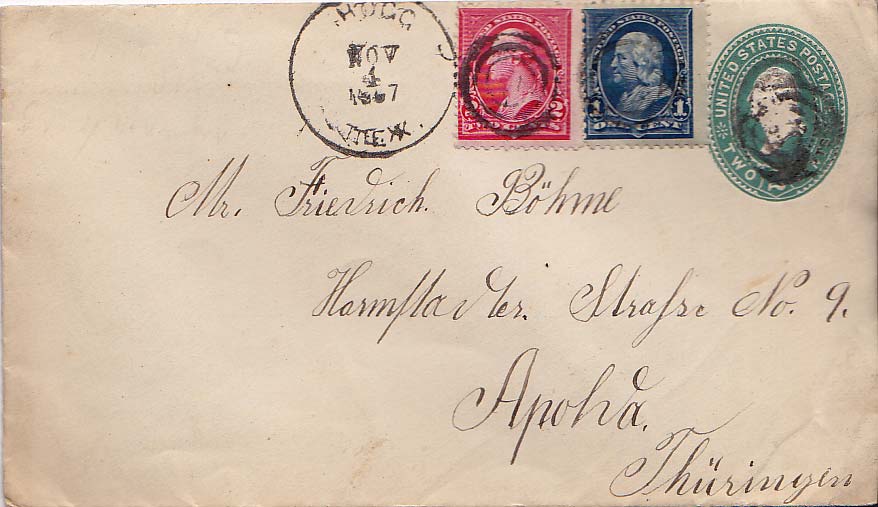 HOGG
NOV
4
1897
TEX.
UNITED STATES POSTAGE
2 TWO CENTS 2
UNITED STATES POSTAGE
1 ONE CENT 1
UNITED STATES POSTA
TWO 2
Mr. Friedrich. Böhme
Harmstadter. Strasse No. 9.
Apolda.
Thüringen